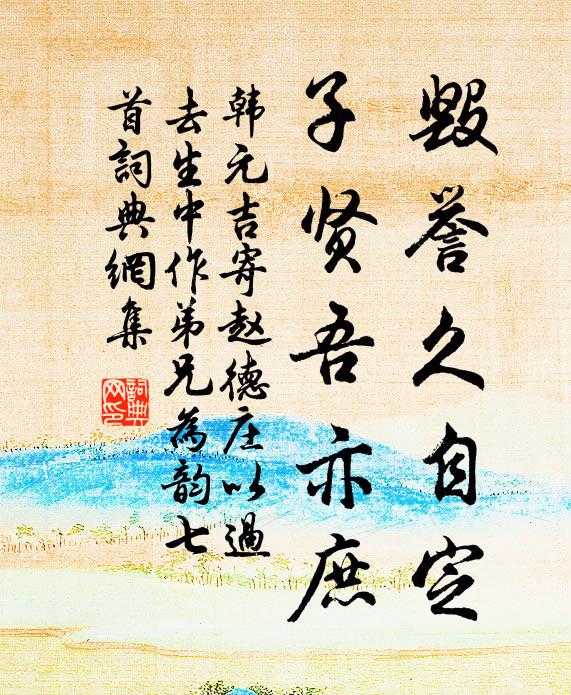 毀誉久自定
子贤吾亦庶
韩元吉寄赵德庄以過
去生中作弟兄為韵七
首詞典網集
詞典
网印